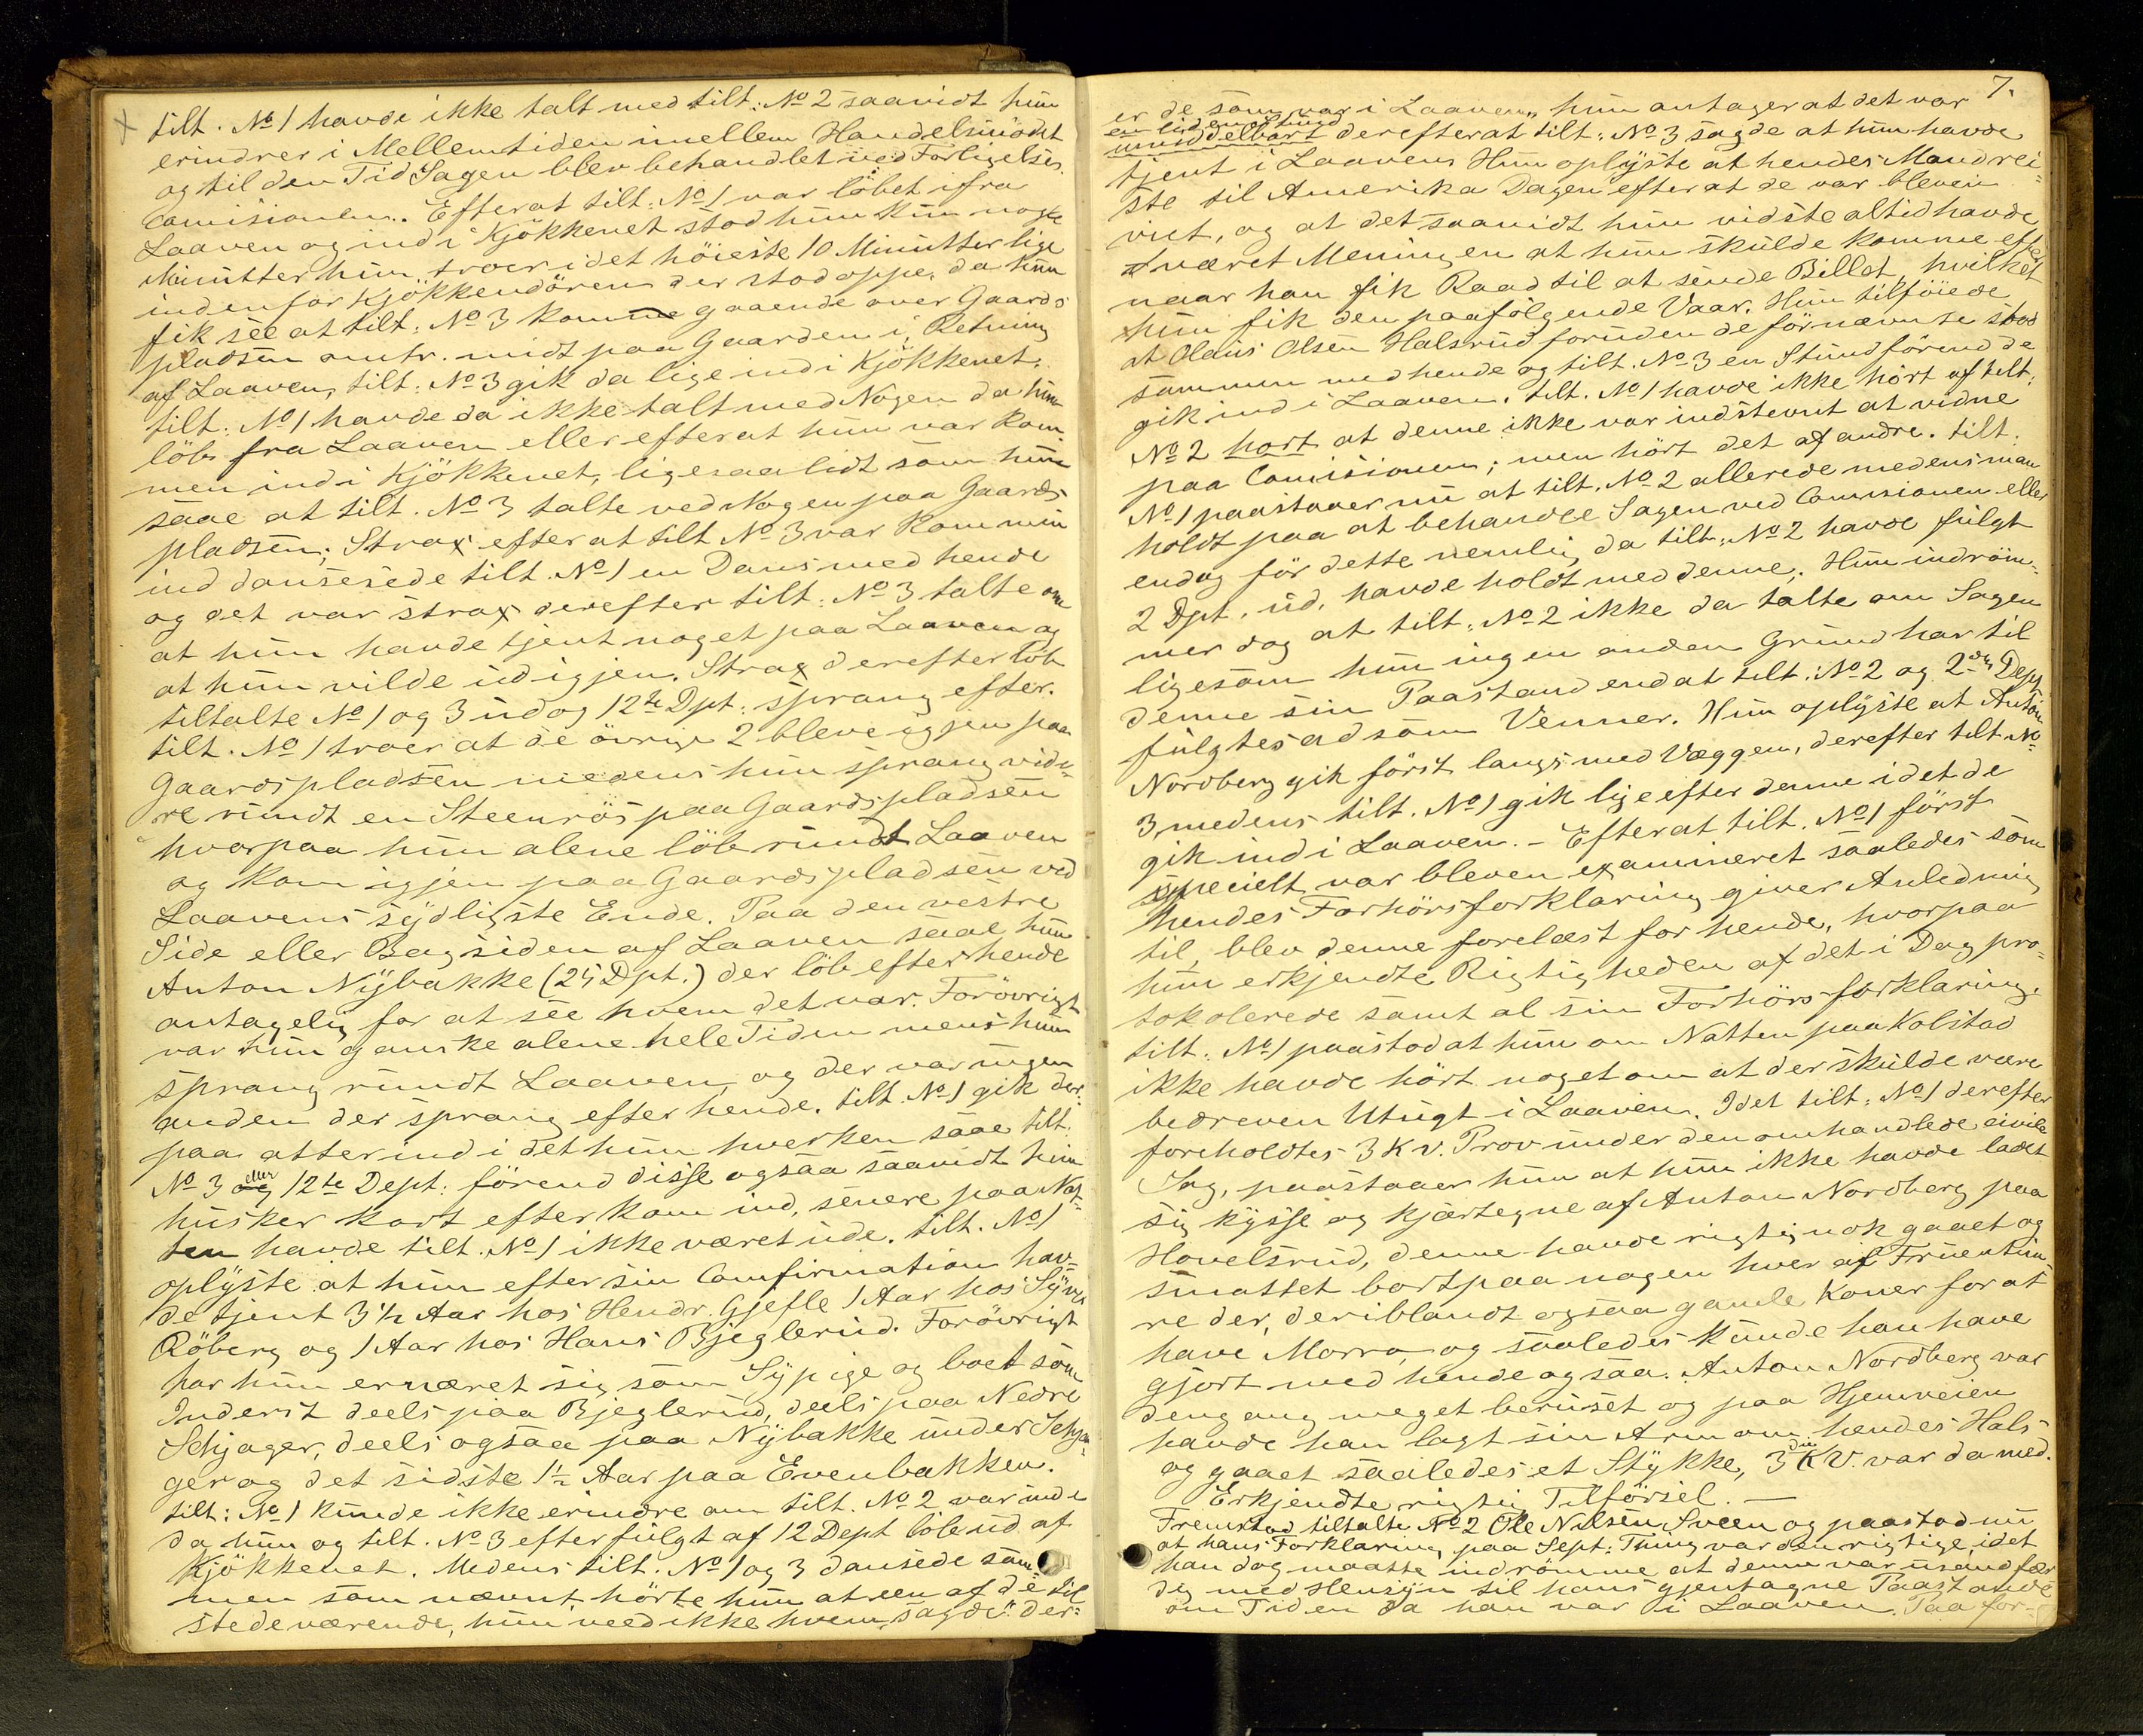 tilt. No 1 havde ikke talt med tilt: No 2 saavidt hun
erindrer i Mellemtiden imellem Handelsmödet
og til den Tid Sagen blev behandlet ved Forligelses
Comisionen. Efterat tilt: No 1 var löbet ifra
Laaven og ind i Kjökkenet stod hun kun nogle
Minutter hun troer i det höieste 10 Minutter lige
indenfor Kjökkendören der stod oppe, da hun
fik see at tilt: No 3 komme gaaende over Gaards
pladsen omtr. midt paa Gaarden i Retning
af Laaven, tilt: No 3 gik da lige ind i Kjökkenet.
tilt: No 1 havde da ikke talt med Nogen da hun
löb fra Laaven eller efterat hun var kom-
men ind i Kjökkenet, ligesaalidt som hun
saae at tilt. No 3 talte ved Nogen paa Gaards
pladsen; Strax efterat tilt No 3 var kommen
ind dansesede tilt. No 1 en Dans med hende
og det var strax derefter tilt: No 3 talte om
at hun havde tjent noget paa Laaven og
at hun vilde ud igjen. Strax derefter löb
tiltalte No 1 og 3 ud og 12te Dpt. sprang efter.
tilt. No 1 troer at de övrige 2 bleve igjen paa
Gaardspladsen medens hun sprang vide-
re rundt en Steenrös paa Gaardspladsen
hvorpaa hun alene löb rundt Laaven
og kom igjen paa Gaardspladsen ved
Laavens sydligste Ende. Paa den vestre
Side eller Bagsiden af Laaven saae hun
Anton Nybakke (25 Dpt.) der löb efter hende
antagelig for at see hvem det var. Forövrigt
var hun ganske alene hele Tiden mens hun
sprang rundt Laaven, og der var ingen
anden der sprang efter hende. tilt. No 1 gik der-
paa atter ind i det hun hverken saae tilt.
No 3 og eller 12te Dept: förend disse ogsaa saavidt hun
husker kort efter kom ind, senere paa Nat-
ten havde tilt. No 1 ikke været ude. tilt. No 1
oplyste at hun efter sin Comfirmation hav-
de tjent 3 1/2 Aar hos Hendr. Gjefle 1 Aar hos Syver
Röberg og 1 Aar hos Hans Bjeglerud. Forövrigt
har hun ernæret sig som Sypige og boet som
Inderst deels paa Bjeglerud, deels paa Nedre
Schjager, deels ogsaa paa Nybakke under Schja-
ger og det sidste 1 1/2 Aar paa Evenbakken.
tilt: No 1 kunde ikke erindre om tilt. No 2 var inde
da hun og tilt. No 3 efterfulgt af 12 Dept löb ud af
Kjökkenet. Medens tilt. No 1 og 3 dansede sam
men som nævnt hörte hun at een af de til
stedeværende, hun veed ikke hvem, sagde "der-
7.
er de som var i Laaven", hun antager at det var
en liden Stund
umiddelbart derefter at tilt: No 3 sagde at hun havde
tjent i Laaven. Hun oplyste at hendes Mand rei-
ste til Amerika Dagen efterat de var bleven
viet, og at det saavidt hun vidste altid havde
været Meningen at hun skulde komme efter
naar han fik Raad til at sende Billet, hvilket
hun fik den paafölgende Vaar. Hun tilföiede
at Olaus Olsen Halsrud foruden de förnævnte stod
sammen med hende og tilt. No 3 en Stund förend de
gik ind i Laaven. tilt. No 1 havde ikke hört af tilt:
No 2 hort at denne ikke var indstevnt at vidne
paa Comisionen; men hört det af andre. tilt.
No 1 paastaaer nu at tilt. No 2 allerede medens man
holdt paa at behandle Sagen ved Comisionen eller
endog för dette nemlig da tilt: No 2 havde fulgt
2 Dpt. ud, havde holdt med denne. Hun indröm-
mer dog at tilt: No 2 ikke da talte om Sagen
ligesom hun ingen anden Grund har til
denne sin Paastand end at tilt: No 2 og 2det Dept
fulgtes ad som Venner. Hun oplyste at Anton
Nordberg gik först langs med Væggen, derefter tilt. No
3, medens tilt. No 1 gik lige efter denne i det de
gik ind i Laaven. - Efterat tilt. No 1 först
specielt var bleven examineret saaledes som
hendes Forhörsforklaring giver Anledning
til, blev denne forelæst for hende, hvorpaa
hun erkjendte Rigtigheden af det i Dag pro-
tokolerede samt al sin Forhörsforklaring.
tilt: No 1 paastod at hun om Natten paa Kolstad
ikke havde hört noget om at der skulde være
bedreven Utugt i Laaven. Idet tilt: No 1 derefter
foreholdtes 3 K.V. Prov under den omhandlede civile
Sag, paastaaer hun at hun ikke havde ladet
sig kysse og kjærtegne af Anton Nordberg paa
Hovelsrud, denne havde rigtignok gaaet og
smattet bortpaa nogen hver af Fruentim-
re der, deriblandt ogsaa gamle Koner for at
have Morro, og saaledes kunde han have
gjort med hende ogsaa. Anton Nordberg var
dengang meget beruset og paa Hjemveien
havde han lagt sin Arm om hendes Hals
og gaaet saaledes et Stykke, 3die K.V. var da med.
Erkjendte rigtig Tilförsel. —
Fremstod tiltalte No 2 Ole Nilsen Sveen og paastod nu
at hans Forklaring paa Sept: Thing var den rigtige, idet
han dog maatte indrömme at denne var usandfær
dig med Hensyn til hans gjentagne Paastande
om Tiden da han var i Laaven. Paa for-